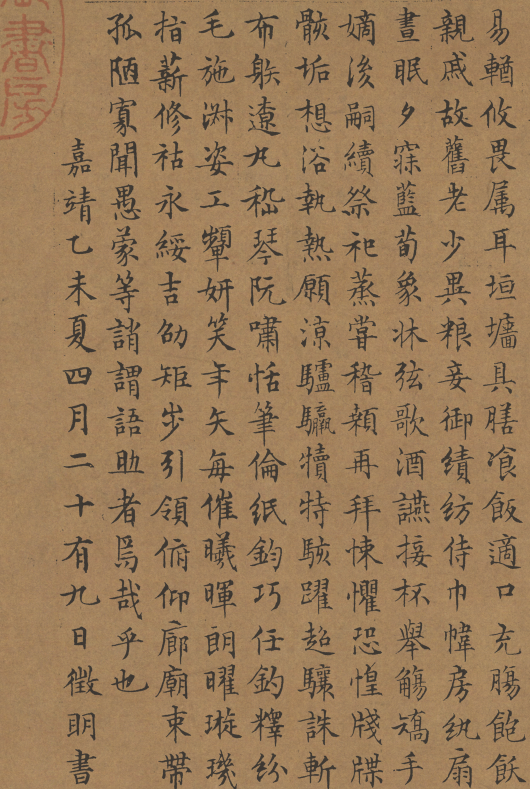 易輶攸畏属耳垣墻具膳飡飯適口充膓飽飫
親戚故舊老少異粮妾御績紡侍巾幃房紈扇
晝眠夕寐藍荀象牀弦歌酒讌接杯舉觴矯手
嫡後嗣續祭祀蒸甞稽顙再拜悚懼恐惶牋牒
骸垢想浴執熱願涼驢驘犢特駭躍超驤誅斬
布䠶遼丸嵇琴阮嘯恬筆倫紙鈞巧任釣釋紛
毛施淑姿工顰妍笑年矢每催曦暉朗曜璇璣
指薪修祜永綏吉劭矩步引領俯仰廊廟束帶
孤陋寡聞愚蒙等誚謂語助者焉哉乎也
嘉靖乙未夏四月二十有九日徵明書
書房